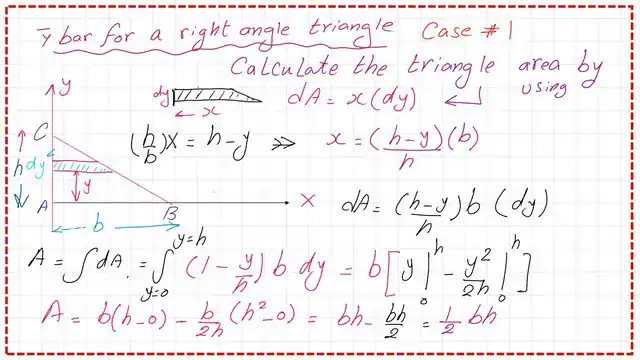 ȳ bar for a right angle triangle Case #1
Calculate the triangle area by using
dy x dA = x(dy)
y
C
(h/b)x = h-y >> x = (h-y)/h (b)
h dy y
A B x
b
dA = (h-y)/h b (dy)
A = ∫dA = ∫_{y=0}^{y=h} (1 - y/h) b dy = b[y|₀ʰ - y²/2h|₀ʰ]
A = b(h-0) - b/2h (h²-0) = bh - bh/2 = 1/2 bh